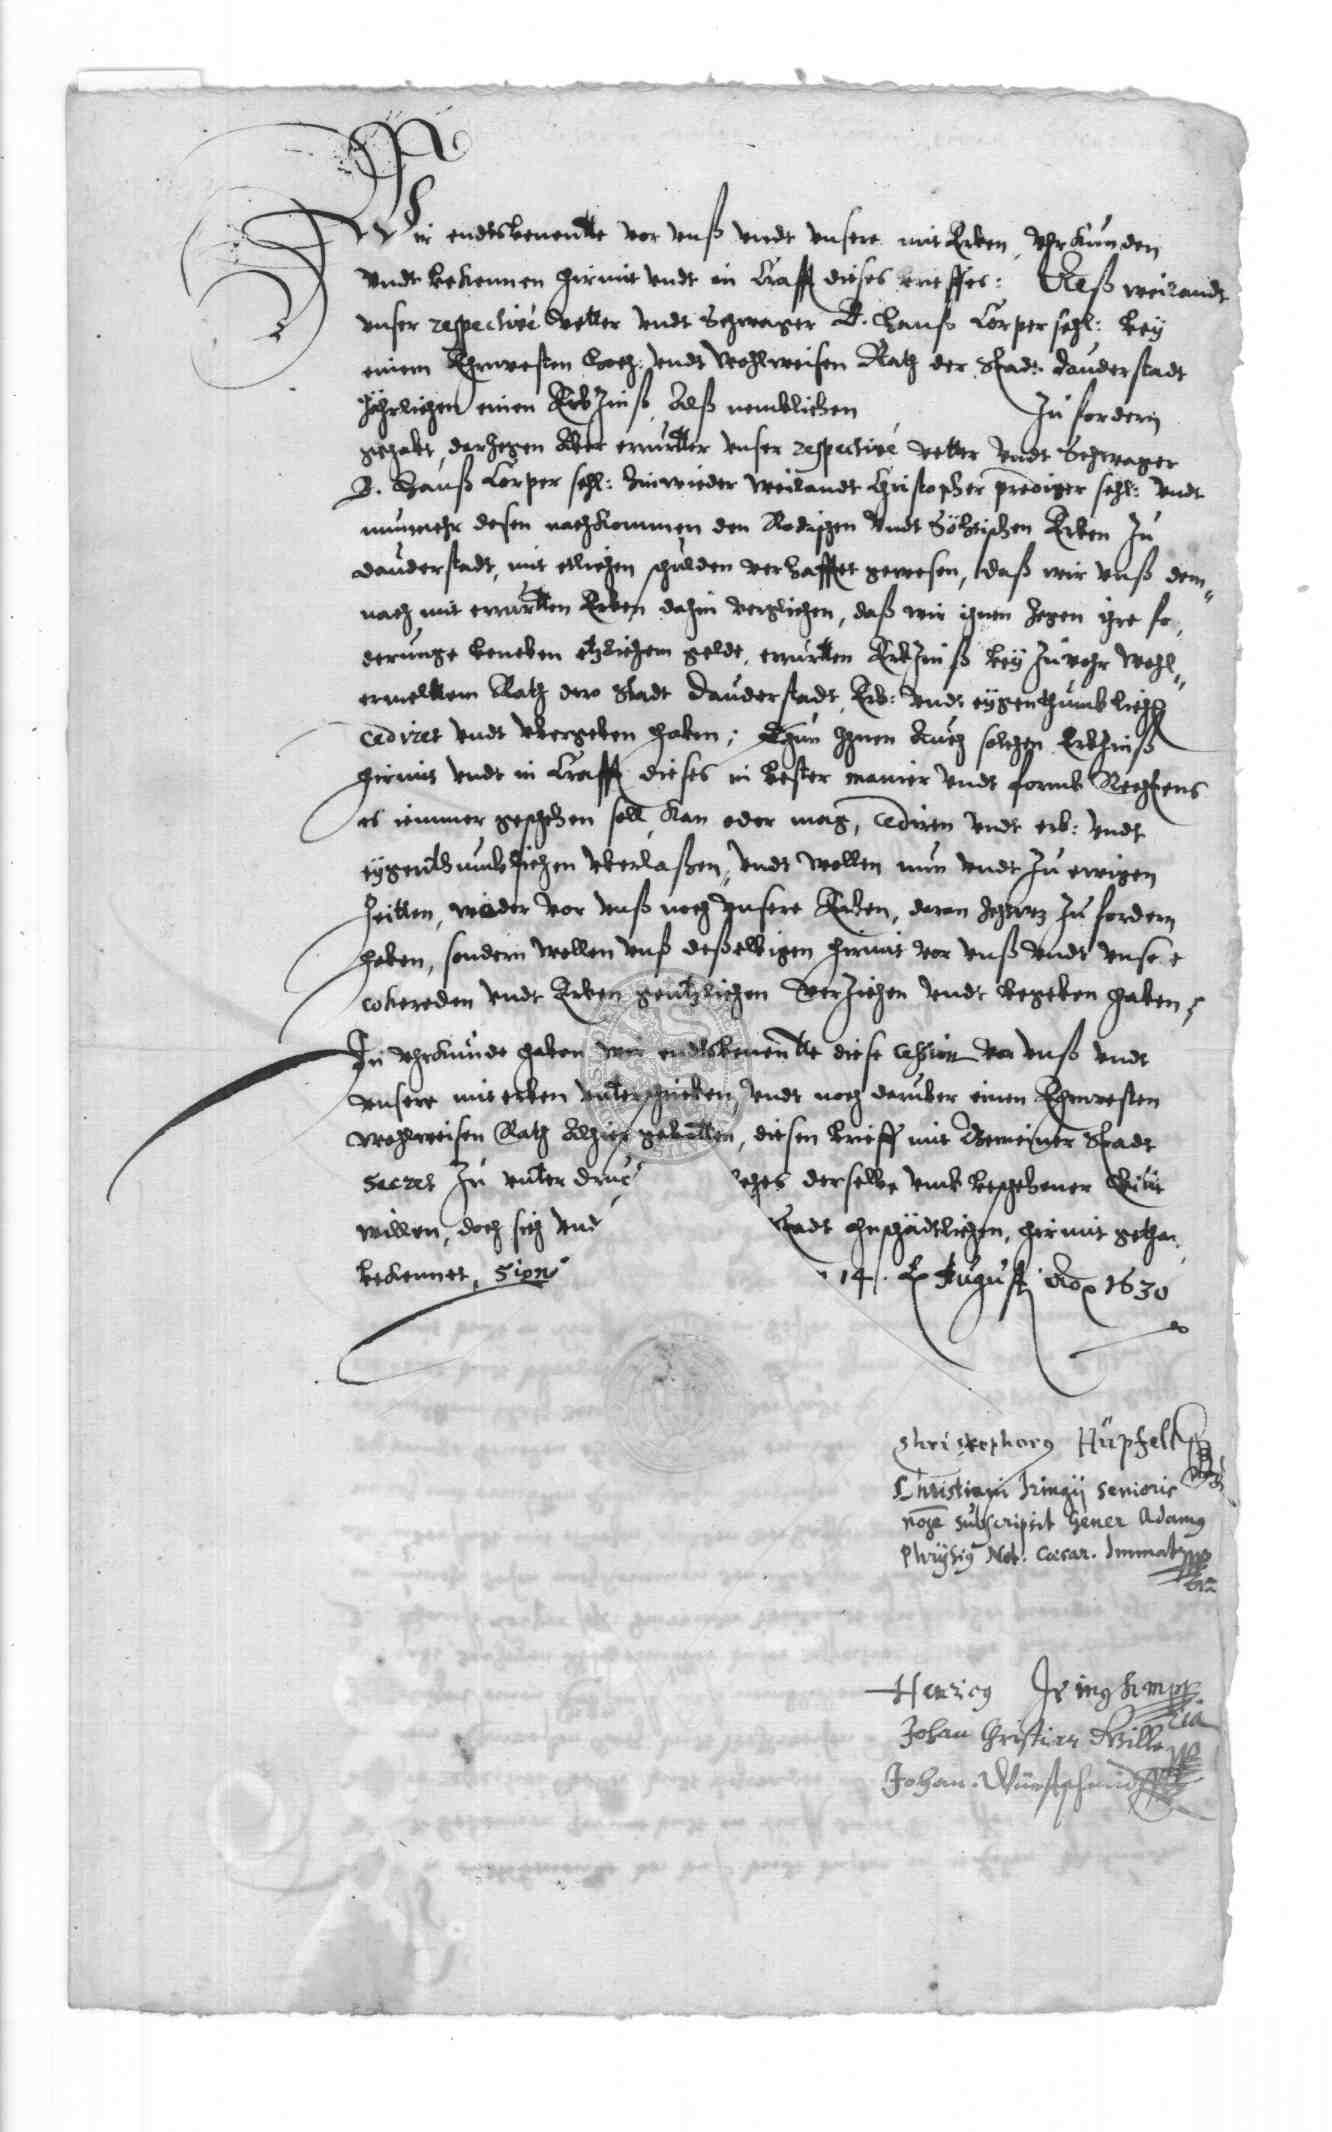 Wir endtsbenentte vor vnß vndt vnsere mit Erben, Vhrkunden
vndt bekennen hirmit vndt in Crafft dieses brieffes: Alß weilandt
vnser respectivé Vetter vndt Schwager D. Hanß Cörper sehl: bey
einem Ehrnvesten Hoch: vndt Wohlweisen Rath der Stadt Dauderstadt
Jährlichen einen ErbZinß, Alß nemblichen Zu fordern
gehabt, darJegen Aber erwenter vnser respectivé vetter vndt Schwager
D. Hanß Cörper sehl: hinwieder Weilandt Christopher prediger sehl: vndt
nunmehr desen nachkommen den vndt Erben Zu
Dauderstadt, mit etlichen schulden verhafftet gewesen, daß wir vnß dem„
nach mit erwenten Erben dahin verglichen, daß wir ihnen Jegen ihre fo„
derunge beneben etzlichem gelde, erwenten ErbZinß bey Zuvohr Wohl„
ermeltem Rath der Stadt Dauderstadt, Erb: vndt eygenthumblich
cediret vndt vbergeben haben; Thun Ihnen Auch solchen ErbZinß
hirmit vndt in Crafft dieses in bester manier vndt formb Rechtens
es immer geschehen soll, kan oder mag, cediren vndt erb: vndt
eygenthumblichen vberlaßen, vndt wollen nun vndt Zu ewigen
Zeitten, wäder vor vnß noch vnsere Erben, daran Ichtwz Zu fordern
haben, sondern wollen vnß deßelbigen hirmit vor vnß vndt vnsere
cohereden vndt Erben gentzlichen VerZiehen vndt begeben haben;
Zu Vhrkunde haben wir endtsbenentte diese cession vor vnß vndt
vnsere mit erben vnterschrieben, vndt noch daruber einen Ehrnvesten
Wohlweisen Rath Alhier gebetten, diesen brieff mit Gemeiner Stadt
Secret Zu vnter druc ches derselbe vmb beschehener Bitt
willen, doch sich vnd Stadt ohnschädtlichen, hirmit gethan
bekennet, Sign 14. August Ao 1630
Christophorg Hüpfelt
Christiani Iringij Senioris
noīe subscripsit Gener Adamg
Phrysig Not. Cæsar. Immatr.
Henricg Iring
Johan Christian Wille
Johan Würtschmidt